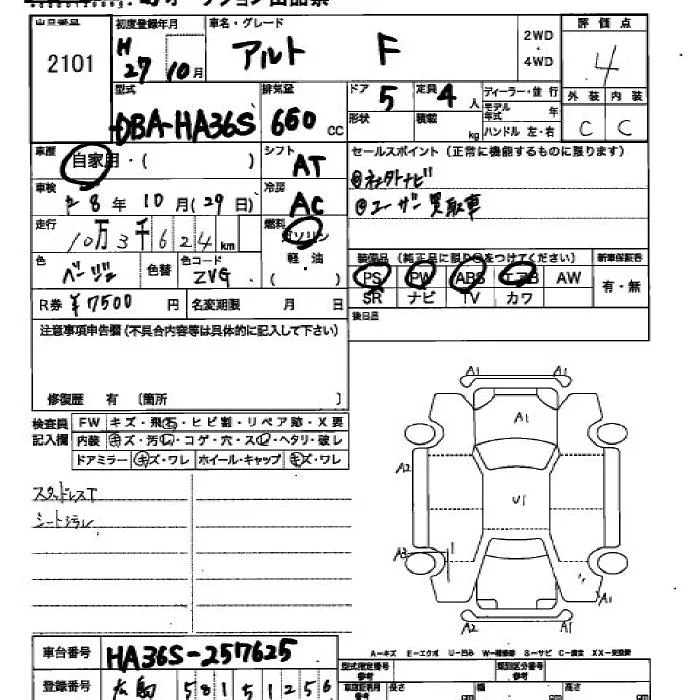 オークション出品票
出品番号 2101
初度登録年月 H27 10月
車名・グレード アルト F
2WD・4WD
評価点 4
外装 内装
C C
型式 DBA-HA36S
排気量 660 CC
ドア 5 定員 4人
形状 積載 kg
ディーラー・並行
モデル年式 年
ハンドル 左・右
車歴 自家用・( )
シフト AT
セールスポイント(正常に機能するものに限ります)
車検 28年 10月(29日)
冷房 AC
◎ユーザー買取車
走行 10万3千624km
燃料 ガソリン 軽油 ( )
色 ベージュ 色替 色コード ZVG
装備品(純正品に限り○をつけてください) 新車保証書
PS PW ABS エアB AW 有・無
SR ナビ TV カワ
R券 ¥7500 円 名変期限 月 日
後日品
注意事項申告欄(不具合内容等は具体的に記入して下さい)
修復歴 有 〔箇所 〕
検査員記入欄 FW キズ・飛石・ヒビ割・リペア跡・X要
内装 キズ・汚レ・コゲ・穴・スレ・ヘタリ・破レ
ドアミラー キズ・ワレ ホイール・キャップ キズ・ワレ
スタッドレスT
シート汚レ
A1 A1
A1
A2 A2
U1
A3
A1
A1 A1
A-キズ E-エクボ U-凹み W-補修跡 S-サビ C-腐食 XX-交換跡
車台番号 HA36S-257625
型式指定番号 参考 類別区分番号 参考
登録番号 広島 581 51256
長さ cm 幅 cm 高さ cm